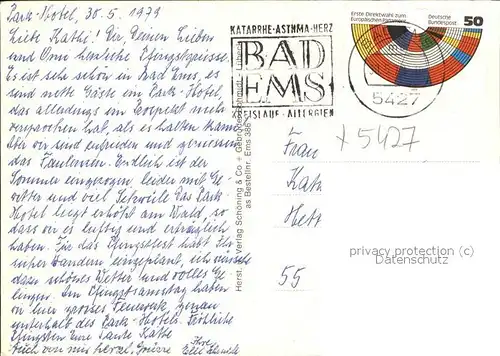 Park-Hotel, 30.5.1979
Liebe Käthi! Dir, Deinen Lieben
und Oma herzliche Pfingstgrüsse.
Es ist sehr schön in Bad Ems, es
sind nette Gäste im Park-Hotel,
das allerdings im Prospekt mehr
versprochen hat, als es halten kann.
Aber wir sind zufrieden und geniessen
das Faulenzen. Endlich ist der
Sommer eingezogen leider mit Ge-
witter und viel Schwüle. Das Park-
Hotel liegt erhöht am Wald, so
dass wir es luftig und erträglich
haben. Für das Pfingstfest habt Ihr
super Wandern eingeplant, ich wünsche
dazu schönes Wetter und volles Ge-
lingen. Am Pfingstsamstag haben
wir ein grosses Feuerwerk, genau
unterhalb des Park-Hotels. Fröhliche
Pfingsten Eure Tante Käthe
Auch von mir herzl. Grüsse Ihre
KATARRHE-ASTHMA-HERZ
BAD
EMS
KREISLAUF-ALLERGIEN
Erste Direktwahl zum
Europäischen Parlament
Deutsche
Bundespost
50
5427
x 5427
Frau
Kat
Hett
55
Herst. u. Verlag Schöning & Co + Gebrüder Schmidt, Lübeck
as Bestellnr. Ems 386
privacy protection (c)
Datenschutz